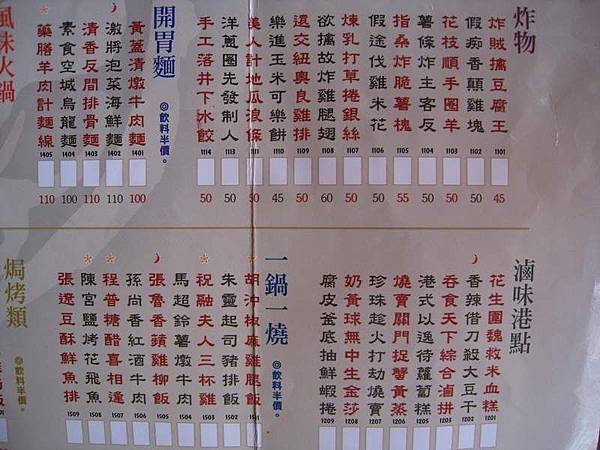 炸物
炸賊擒豆腐王 1101 45
假痴香顛雞塊 1102 50
花枝順手圈羊 1103 50
薯條炸主客反 1104 50
指桑炸脆薯槐 1105 55
假途伐雞米花 1106 50
煉乳打草捲銀絲 1107 50
欲擒故炸雞腿翅 1108 60
遠交紐奧良雞排 1109 50
樂進玉米可樂餅 1110 45
美人計地瓜浪條 1111 50
洋蔥圈先發制人 1113 50
手工落井下水餃 1114 50
開胃麵 ◎飲料半價。
黃蓋清燉牛肉麵 1401 100
激將泡菜海鮮麵 1402 110
清香反間排骨麵 1403 110
素食空城烏龍麵 1404 100
藥膳羊肉計麵線 1405 110
風味火鍋
滷味港點
花生圍魏救米血糕 1201
香辣借刀殺大豆干 1202
吞食天下綜合滷拼 1203
港式以逸待蘿蔔糕 1204
燒賣關門捉蟹黃蒸 1206
珍珠趁火打劫燒賣 1207
奶黃球無中生金莎 1208
腐皮釜底抽鮮蝦捲 1209
一鍋一燒 ◎飲料半價。
胡沖椒麻雞腿飯 1501
朱靈起司豬排飯 1502
祝融夫人三杯雞 1503
馬超鈴薯燉牛肉 1504
張魯香蘋雞柳飯 1505
孫尚香紅酒牛肉 1506
程普糖醋喜相逢 1507
陳宮鹽烤花飛魚 1508
張遼豆酥鮮魚排 1509
焗烤類